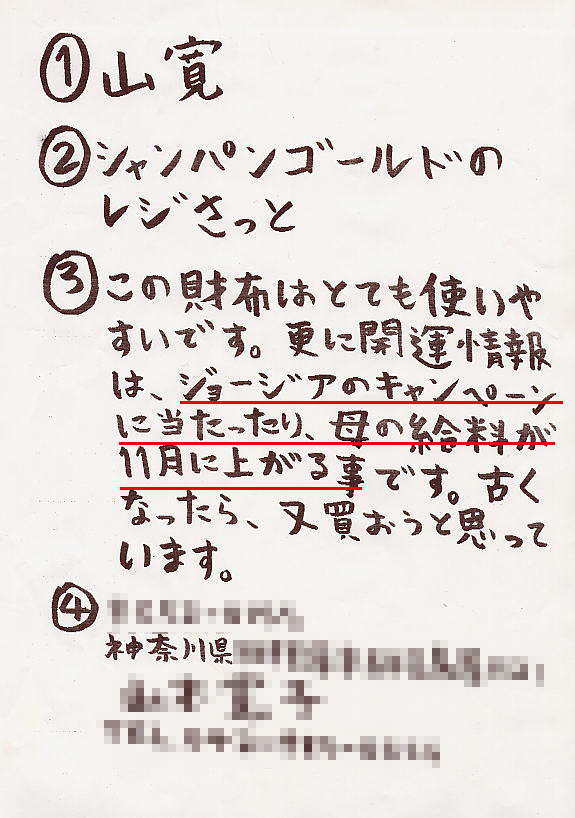 ①山寛
②シャンパンゴールドの
レジさっと
③この財布はとても使いや
すいです。更に開運情報
は、ジョージアのキャンペーン
に当たったり、母の給料が
11月に上がる事です。古く
なったら、又買おうと思って
います。
④
神奈川県